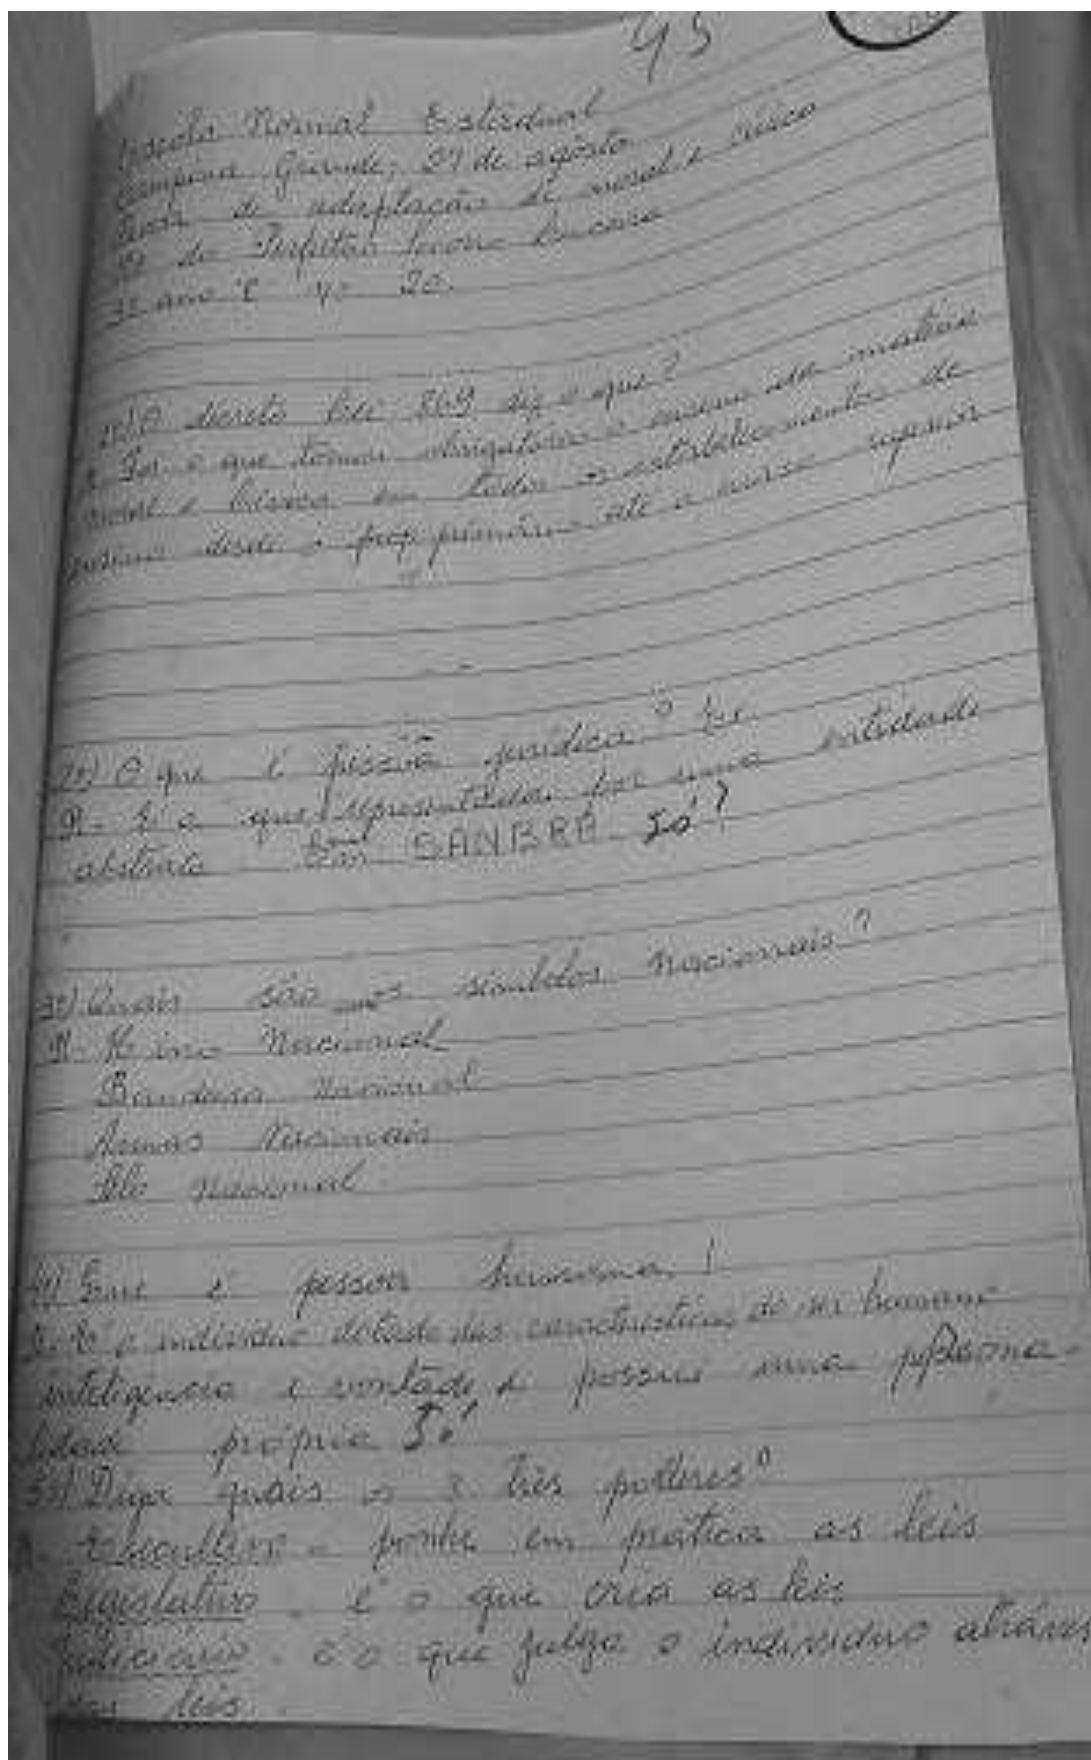 45
Escola Normal Estadual
Campina Grande, 27 de agôsto
de adaptação de moral e cívica
do
3º ano "C" nº 20.
1º) O decreto lei 869 diz o que?
R- Foi o que tornou obrigatório o ensino da matéria
moral e cívica em todos os estabelecimentos de
ensino desde o pré primário até o curso superior
2º) O que é pessoa jurídica?
R- É a que representada por uma entidade
abstrata SANBRA Só?
3º) Quais são os símbolos nacionais?
R- Hino Nacional
Bandeira Nacional
Armas Nacionais
Selo Nacional.
4º) Que é pessoa humana!
R- É o indivíduo dotado das características do ser humano
inteligência e vontade, e possui uma persona-
lidade própria Só!
5º) Diga quais os 3 três poderes?
R- Executivo - ponhe em prática as leis
Legislativo. é o que cria as leis
Judiciário. é o que julga o indivíduo através
das leis.